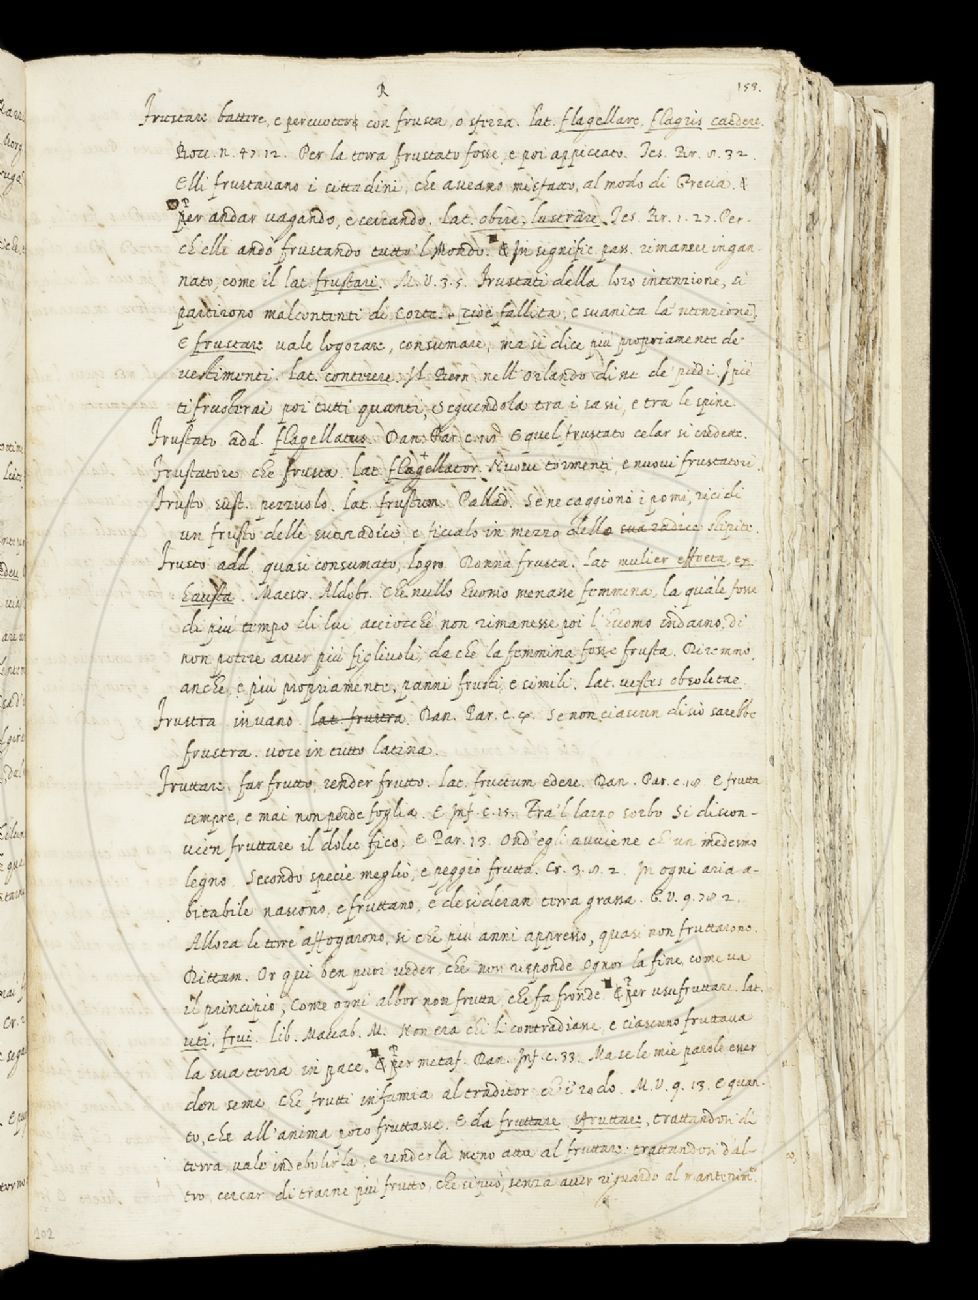 R
153.
Frustare battere, e percuotere con frusta, o sferza. Lat. flagellare, flagris caedere.
Bocc. n. 47. 12. Per la terra frustato fosse, e poi appiccato. Tes. Br. 8. 32.
Elli frustavano i cittadini, che aveano misfatto, al modo di Grecia. &
Per andar vagando, e cercando. Lat. obire, lustrare. Tes. Br. 1. 27. Per-
ch elli andò frustando tutto 'l Mondo. & In signific. pass. rimanere ingan-
nato, come il lat. frustrari. M. V. 3. 5. Frustati della loro intenzione, si
partirono malcontenti di Corte. cioè fallita, e svanita la 'ntenzione]
E frustare vale logorare, consumare, ma si dice più propriamente de
vestimenti. Lat. conterere. Il Bern. nell'Orlando dine de piedi. I piè
ti frusterai poi tutti quanti, Seguendola tra i sassi, e tra le spine
Frustato add. flagellatus. Dan. Par. c. E quel frustato celar si credette.
Frustatore che frusta. Lat. flagellator. Nuovi tormenti, e nuovi frustatori.
Frusto sust. pezzuolo. Lat. frustum. Pallad. Se ne caggiono i pomi, ricidi
un frusto delle sue radici e ficcalo in mezzo dello sua radice stipite.
Frusto add. quasi consumato, logro. Donna frusta. Lat. mulier effoeta, ex-
hausta. Maestr. Aldobr. Che nullo huomo menasse femmina, la quale fosse
di più tempo di lui acciocchè non rimanesse poi l'huomo indarno, di
non potere aver più figliuoli, da che la femmina fosse frusta. Diremno
anche, e più propriamente, panni frusti, e simili. Lat. vestes obsoletae.
Frustra invano. lat. frustra. Dan. Par. c. 4. Se non, ciascun disio sarebbe
frustra. voce in tutto latina.
Fruttare far frutto, render frutto. Lat. fructum edere. Dan. Par. c. 18. E frutta
sempre, e mai non perde foglia. E Inf. c. 15. Tra 'l lazzo sorbo Si discon-
vien fruttare il dolce fico, E Par. 13. Ond'egli avviene ch' un medesmo
legno. Secondo specie meglio, e peggio frutta. Cr. 3. 8. 2. In ogni aria a-
bitabile nascono, e fruttano, e desideran terra grassa. G. V. 9. 78. 2.
Allora le terre affogarono, sì che più anni appresso, quasi non fruttarono.
Dittam. Or qui ben puoi veder, che non risponde Ognor la fine, come va
il principio, Come ogni albor non frutta, che fa fronde. & Per usufruttare. Lat.
uti, frui. Lib. Maccab. M. Non era chi li contradiane, e ciascuno fruttava
la sua terra in pace. & Per metaf. Dan. Inf. c. 33. Ma se le mie parole esser
den seme Che frutti infamia al traditor ch'i' rodo. M. V. 9. 13. E quan-
to, che all'anima poco fruttasse. E da fruttare sfruttare, trattandosi di
terra vale indebolirla, e renderla meno atta al fruttare: trattandosi d'al-
tro, cercar di trarne più frutto, che si può, senza aver riguardo al mantenim.to
202